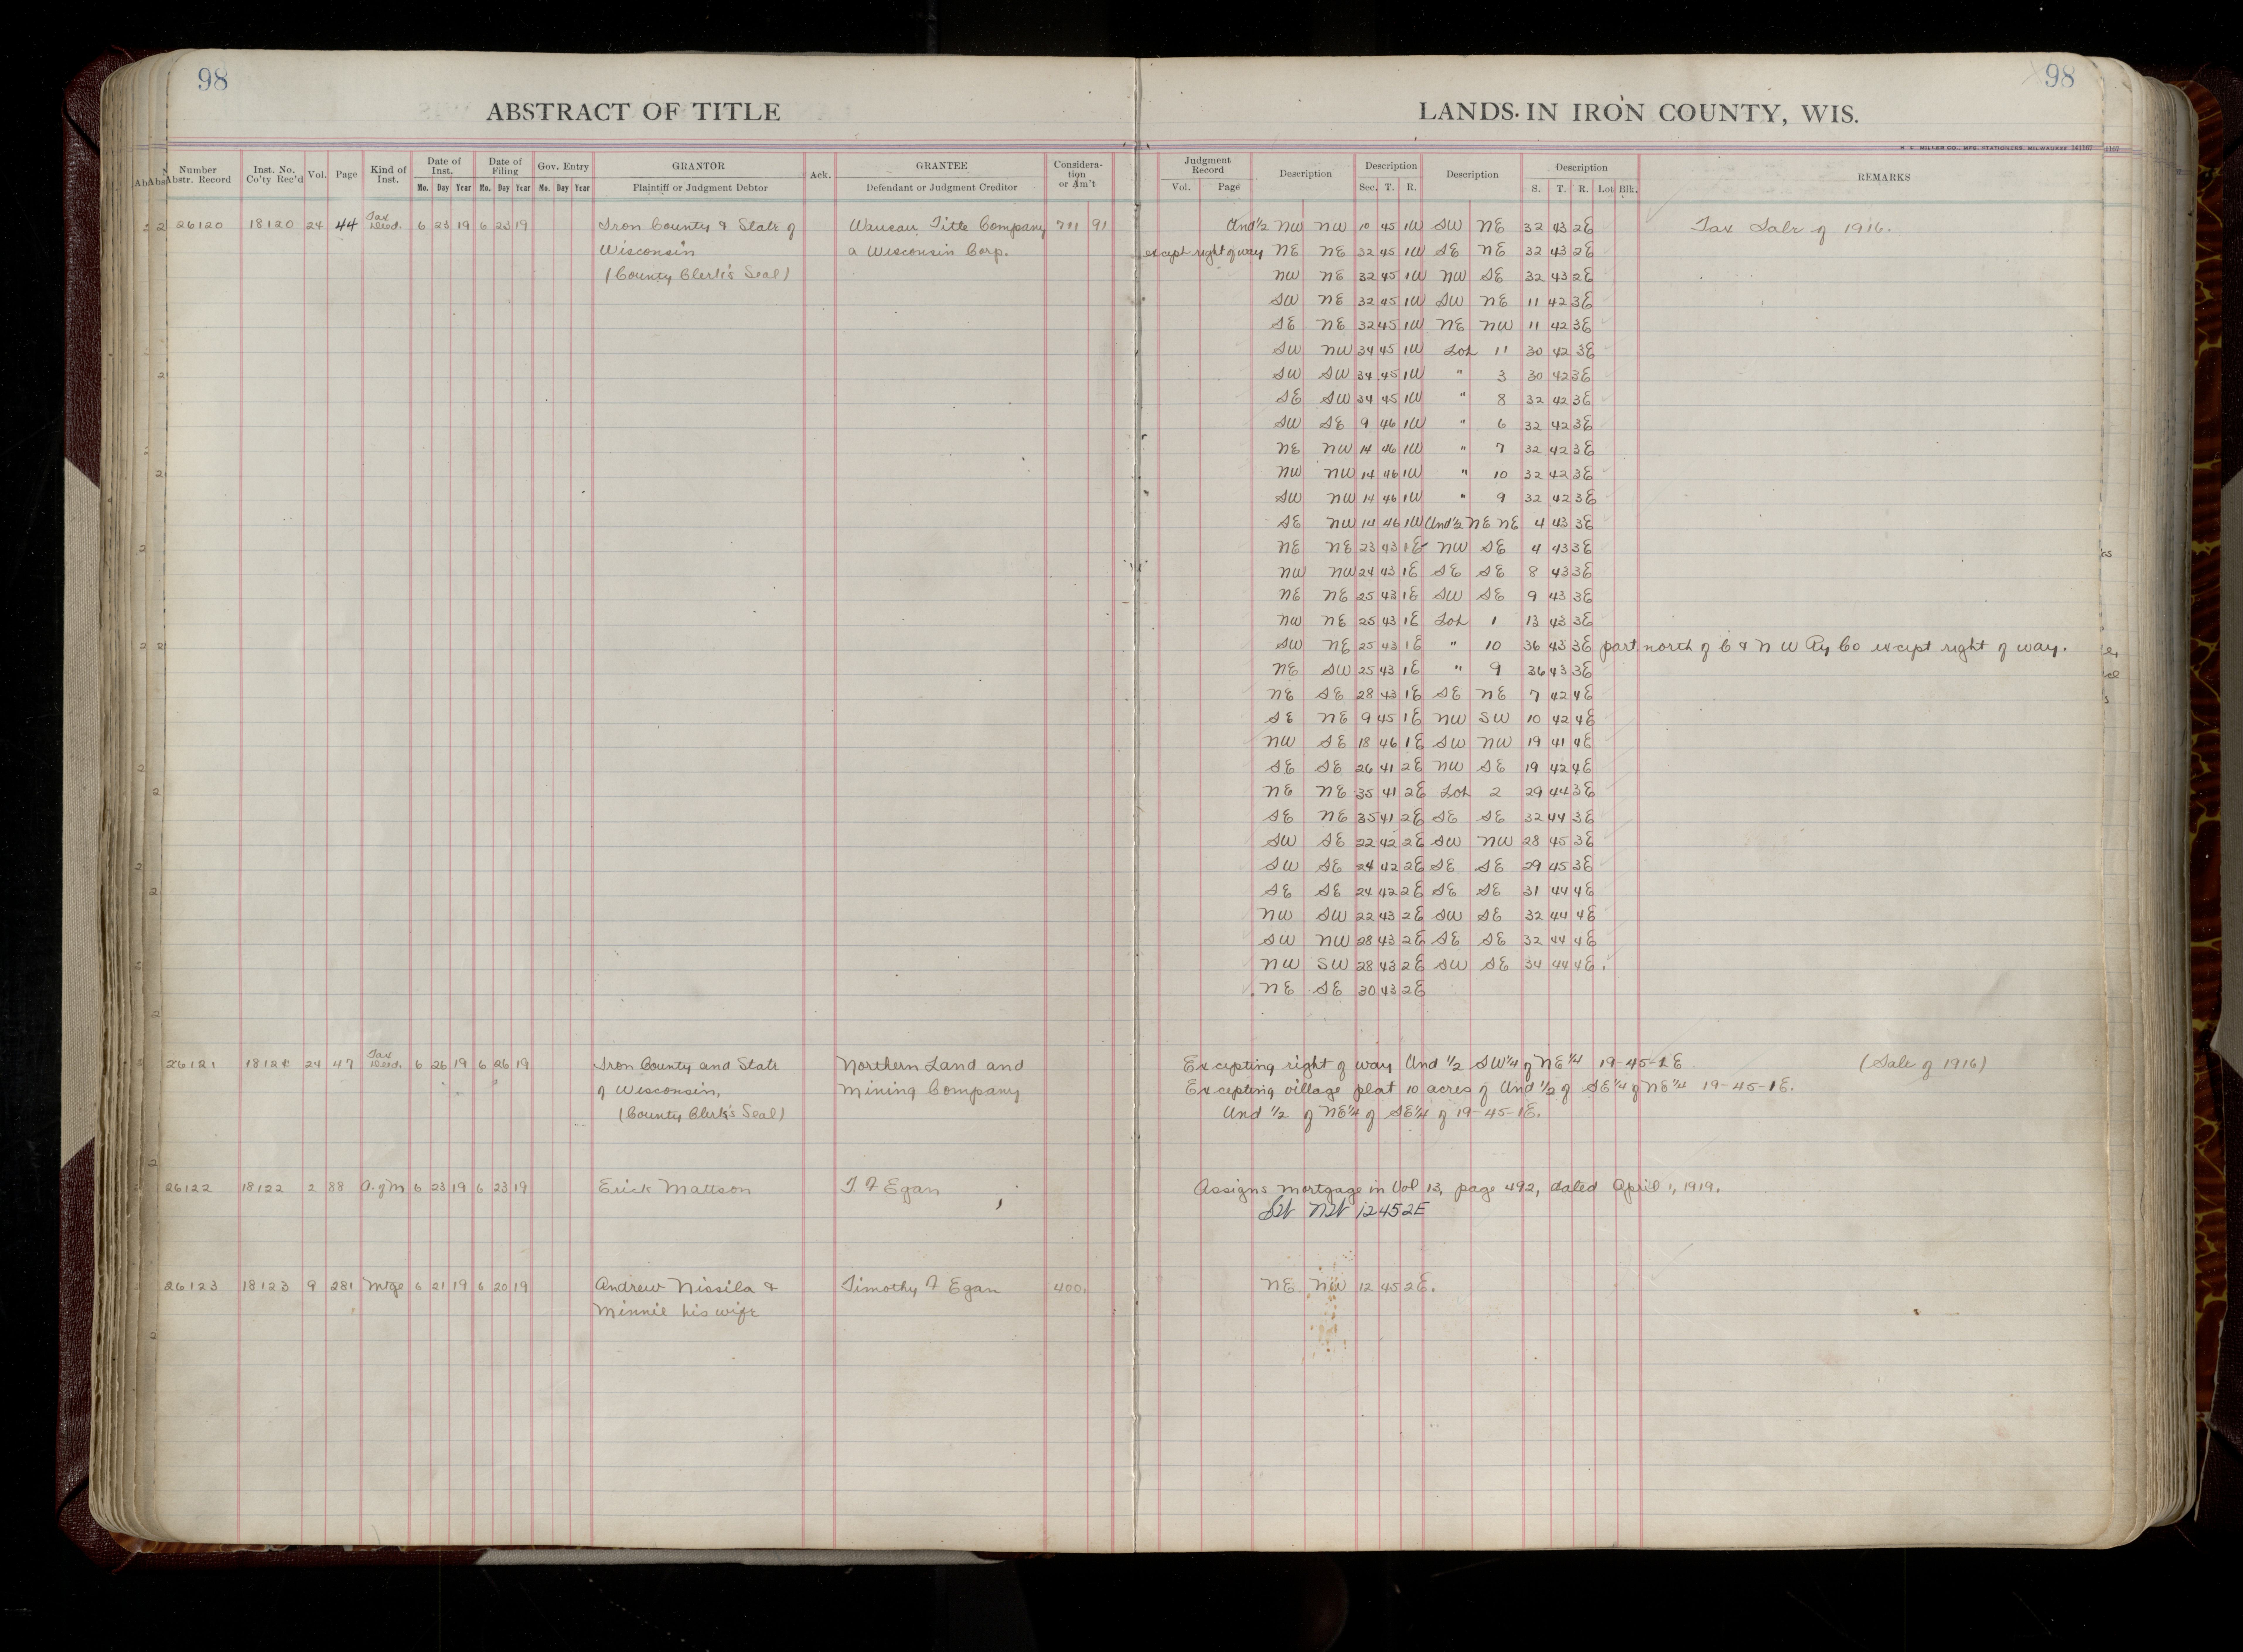 98
98
ABSTRACT OF TITLE
LANDS IN IRON COUNTY, WIS.
H. E. MILLER CO., MFG. STATIONERS, MILWAUKEE 161167
Number Abstr. Record Inst. No. Co'ty Rec'd Vol. Page Kind of Inst. Date of Inst. Mo. Day Year Date of Filing Mo. Day Year Gov. Entry Mo. Day Year GRANTOR Plaintiff or Judgment Debtor Ack. GRANTEE Defendant or Judgment Creditor Consideration or Am't Judgment Record Vol. Page Description Description Sec. T. R. Description Description S. T. R. Lot Blk. REMARKS
26120 18120 24 44 Tax Deed. 6 23 19 6 23 19 Iron County & State of Wausau Title Company 711 91 Und 1/2 NW NW 10 45 1W SW NE 32 43 2E Tax Sale of 1916.
Wisconsin a Wisconsin Corp. except right of way NE NE 32 45 1W SE NE 32 43 2E
(County Clerk's Seal) NW NE 32 45 1W NW SE 32 43 2E
SW NE 32 45 1W SW NE 11 42 3E
SE NE 32 45 1W NE NW 11 42 3E
SW NW 34 45 1W Lot 11 30 42 3E
SW SW 34 45 1W " 3 30 42 3E
SE SW 34 45 1W " 8 32 42 3E
SW SE 9 46 1W " 6 32 42 3E
NE NW 14 46 1W " 7 32 42 3E
NW NW 14 46 1W " 10 32 42 3E
SW NW 14 46 1W " 9 32 42 3E
SE NW 14 46 1W Und 1/2 NE NE 4 43 3E
NE NE 23 43 1E NW SE 4 43 3E
NW NW 24 43 1E SE SE 8 43 3E
NE NE 25 43 1E SW SE 9 43 3E
NW NE 25 43 1E Lot 1 13 43 3E
SW NE 25 43 1E " 10 36 43 3E part north of C & N W Ry Co except right of way.
NE SW 25 43 1E " 9 36 43 3E
NE SE 28 43 1E SE NE 7 42 4E
SE NE 9 45 1E NW SW 10 42 4E
NW SE 18 46 1E SW NW 19 41 4E
SE SE 26 41 2E NW SE 19 42 4E
NE NE 35 41 2E Lot 2 29 44 3E
SE NE 35 41 2E SE SE 32 44 3E
SW SE 22 42 2E SW NW 28 45 3E
SW SE 24 42 2E SE SE 29 45 3E
SE SE 24 42 2E SE SE 31 44 4E
NW SW 22 43 2E SW SE 32 44 4E
SW NW 28 43 2E SE SE 32 44 4E
NW SW 28 43 2E SW SE 34 44 4E.
NE SE 30 43 2E
26121 24 47 Tax Deed. 6 26 19 6 26 19 Iron County and State Northern Land and Excepting right of way Und 1/2 SW 1/4 of NE 1/4 19-45-1E (Sale of 1916)
of Wisconsin, Mining Company Excepting village plat 10 acres of Und 1/2 of SE 1/4 of NE 1/4 19-45-1E.
(County Clerk's Seal) Und 1/2 of NE 1/4 of SE 1/4 of 19-45-1E.
26122 18122 2 88 A. of M 6 23 19 6 23 19 Erick Mattson T F Egan Assigns mortgage in Vol 13, page 492, dated April 1, 1919.
SW NW 12 45 2E
26123 18123 9 281 Mtge 6 21 19 6 20 19 Andrew Nissila & Timothy F Egan 400. NE NW 12 45 2E.
Minnie his wife